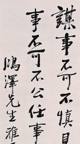 謀事不可不慎見
事不可不公任事
鵬澤先生雅